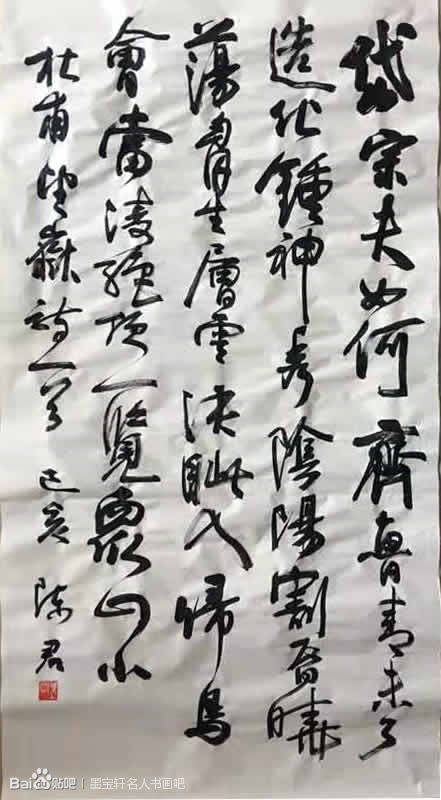 岱宗夫如何齊魯青未了
造化鍾神秀陰陽割昏曉
蕩胷生層雲決眦入歸鳥
會當凌絕頂一覽眾山小
杜甫望嶽詩一首 己亥 陳君
Bai贴吧 | 墨宝轩名人书画吧